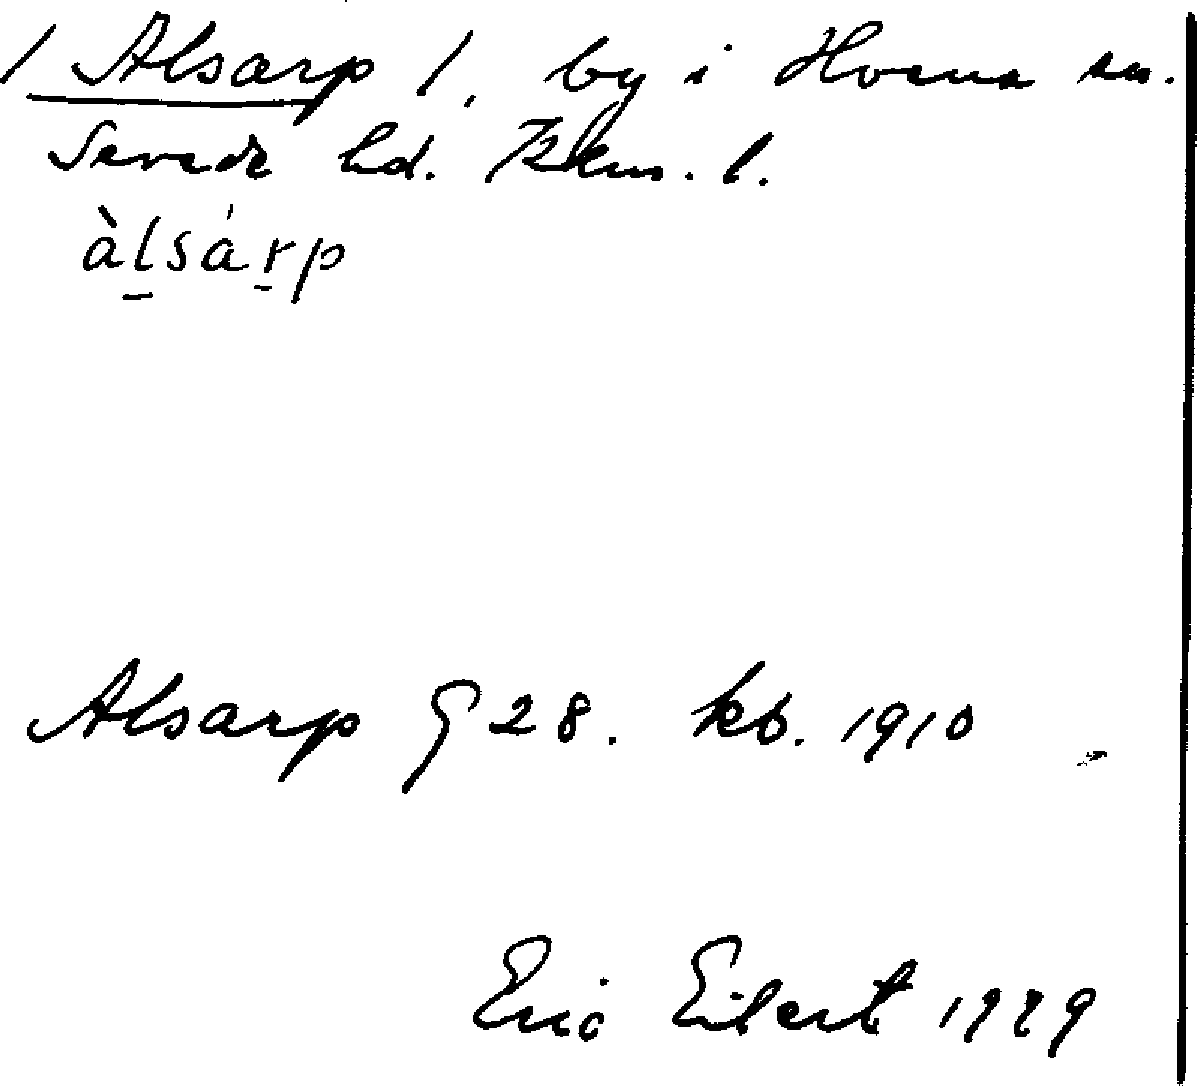 / Alsarp /, by i Horns sn.
Sevede hd. Kalm. l.
àl̠sár̠p
Alsarp G 28. kb. 1910
Eric Eilert 1929